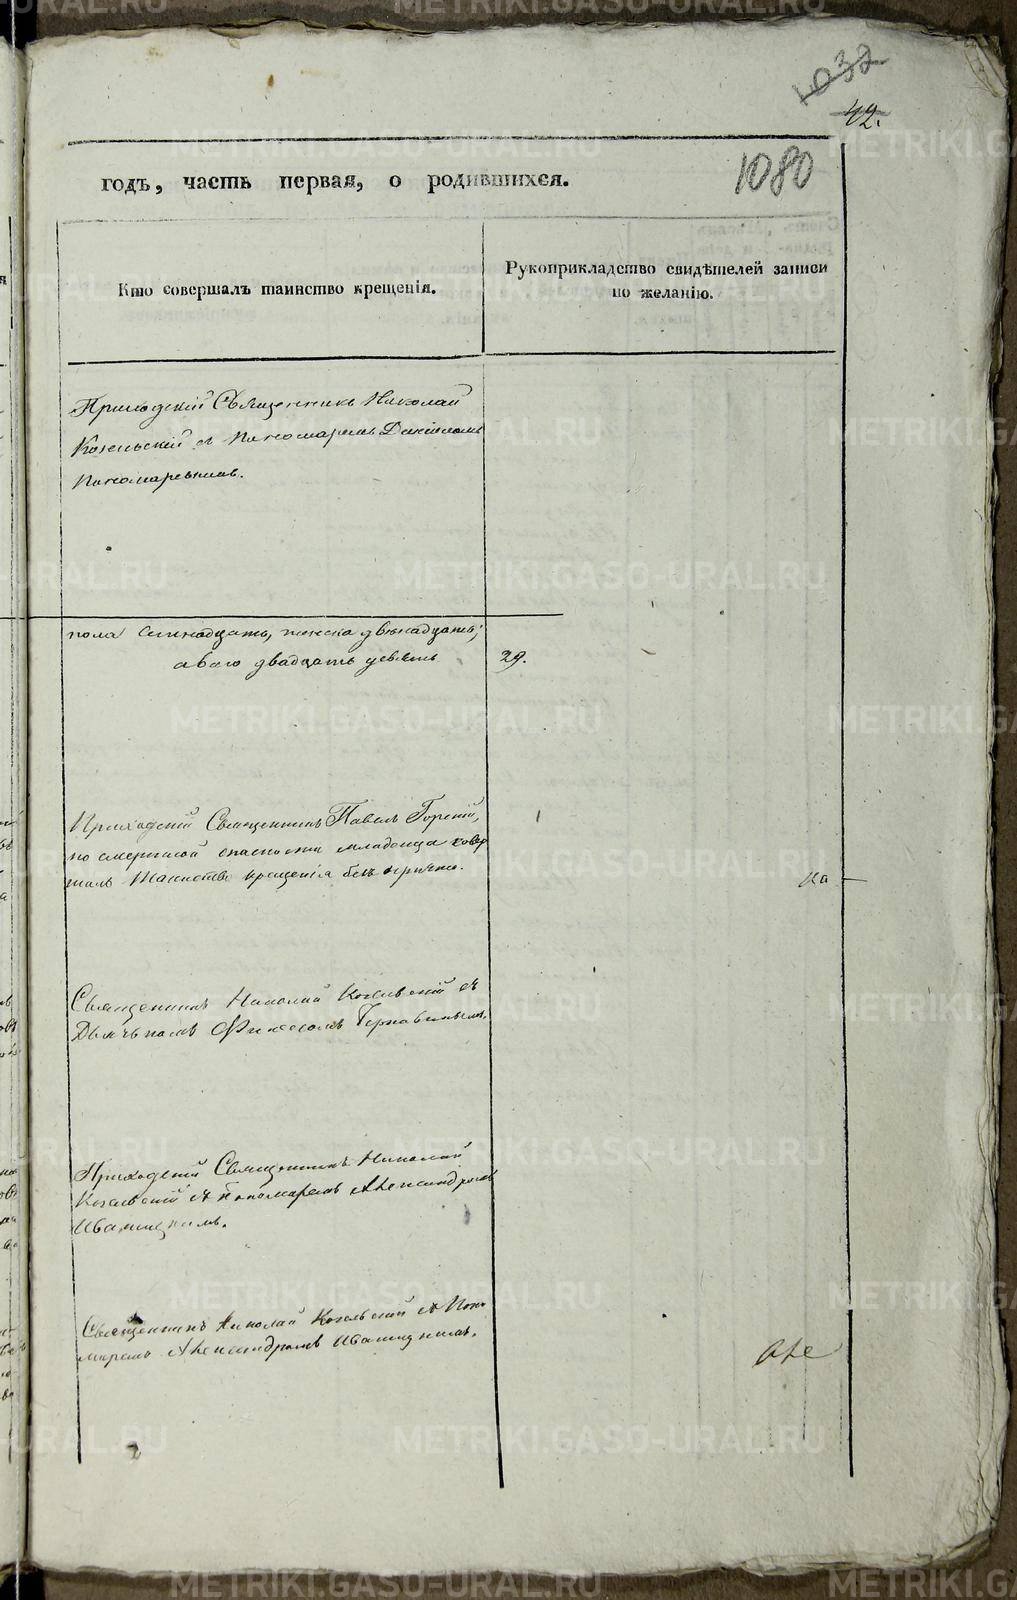 1032
42.
1080
годъ, часть первая, о родившихся.
Кто совершалъ таинство крещенія.
Рукоприкладство свидѣтелей записи
по желанію.
Приходскій Священникъ Николай
Козельскій съ Пономаремъ Даніиломъ
Пономаревымъ.
пола семнадцать, женска двѣнадцать;
а всего двадцать девять
29.
Приходскій Священникъ Павелъ Горскій,
по смертной опасности младенца совер
шалъ Таинство крещенія безъ
Священникъ Николай Козельскій съ
Дьячкомъ
Приходскій Священникъ Николай
Козельскій съ Пономаремъ Александромъ
Иваницкимъ.
Священникъ Николай Козельскій съ Поно
маремъ Александромъ Иваницкимъ.
METRIKI.GASO-URAL.RU